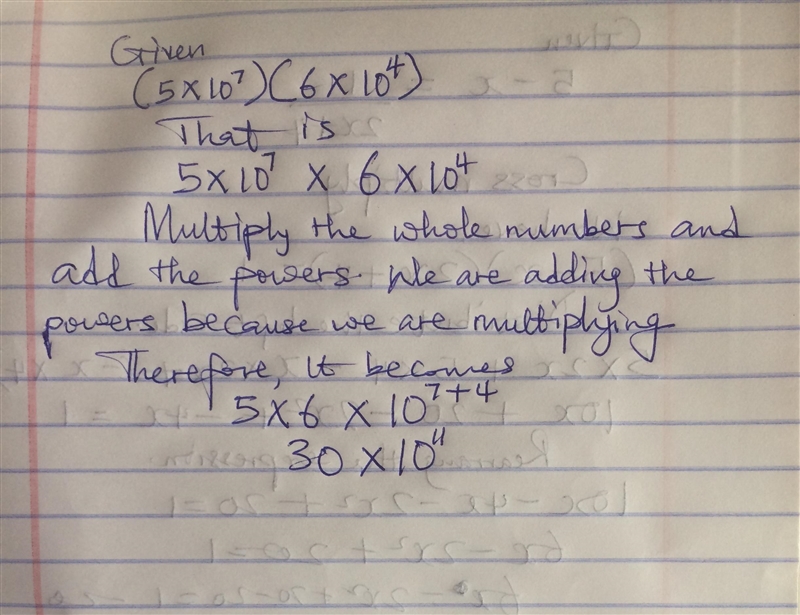 Given
(5×10⁷)(6×10⁴)
That is
5×10⁷ × 6×10⁴
Multiply the whole numbers and
add the powers. We are adding the
powers because we are multiplying
Therefore, it becomes
5×6 ×10⁷⁺⁴
30 ×10¹¹